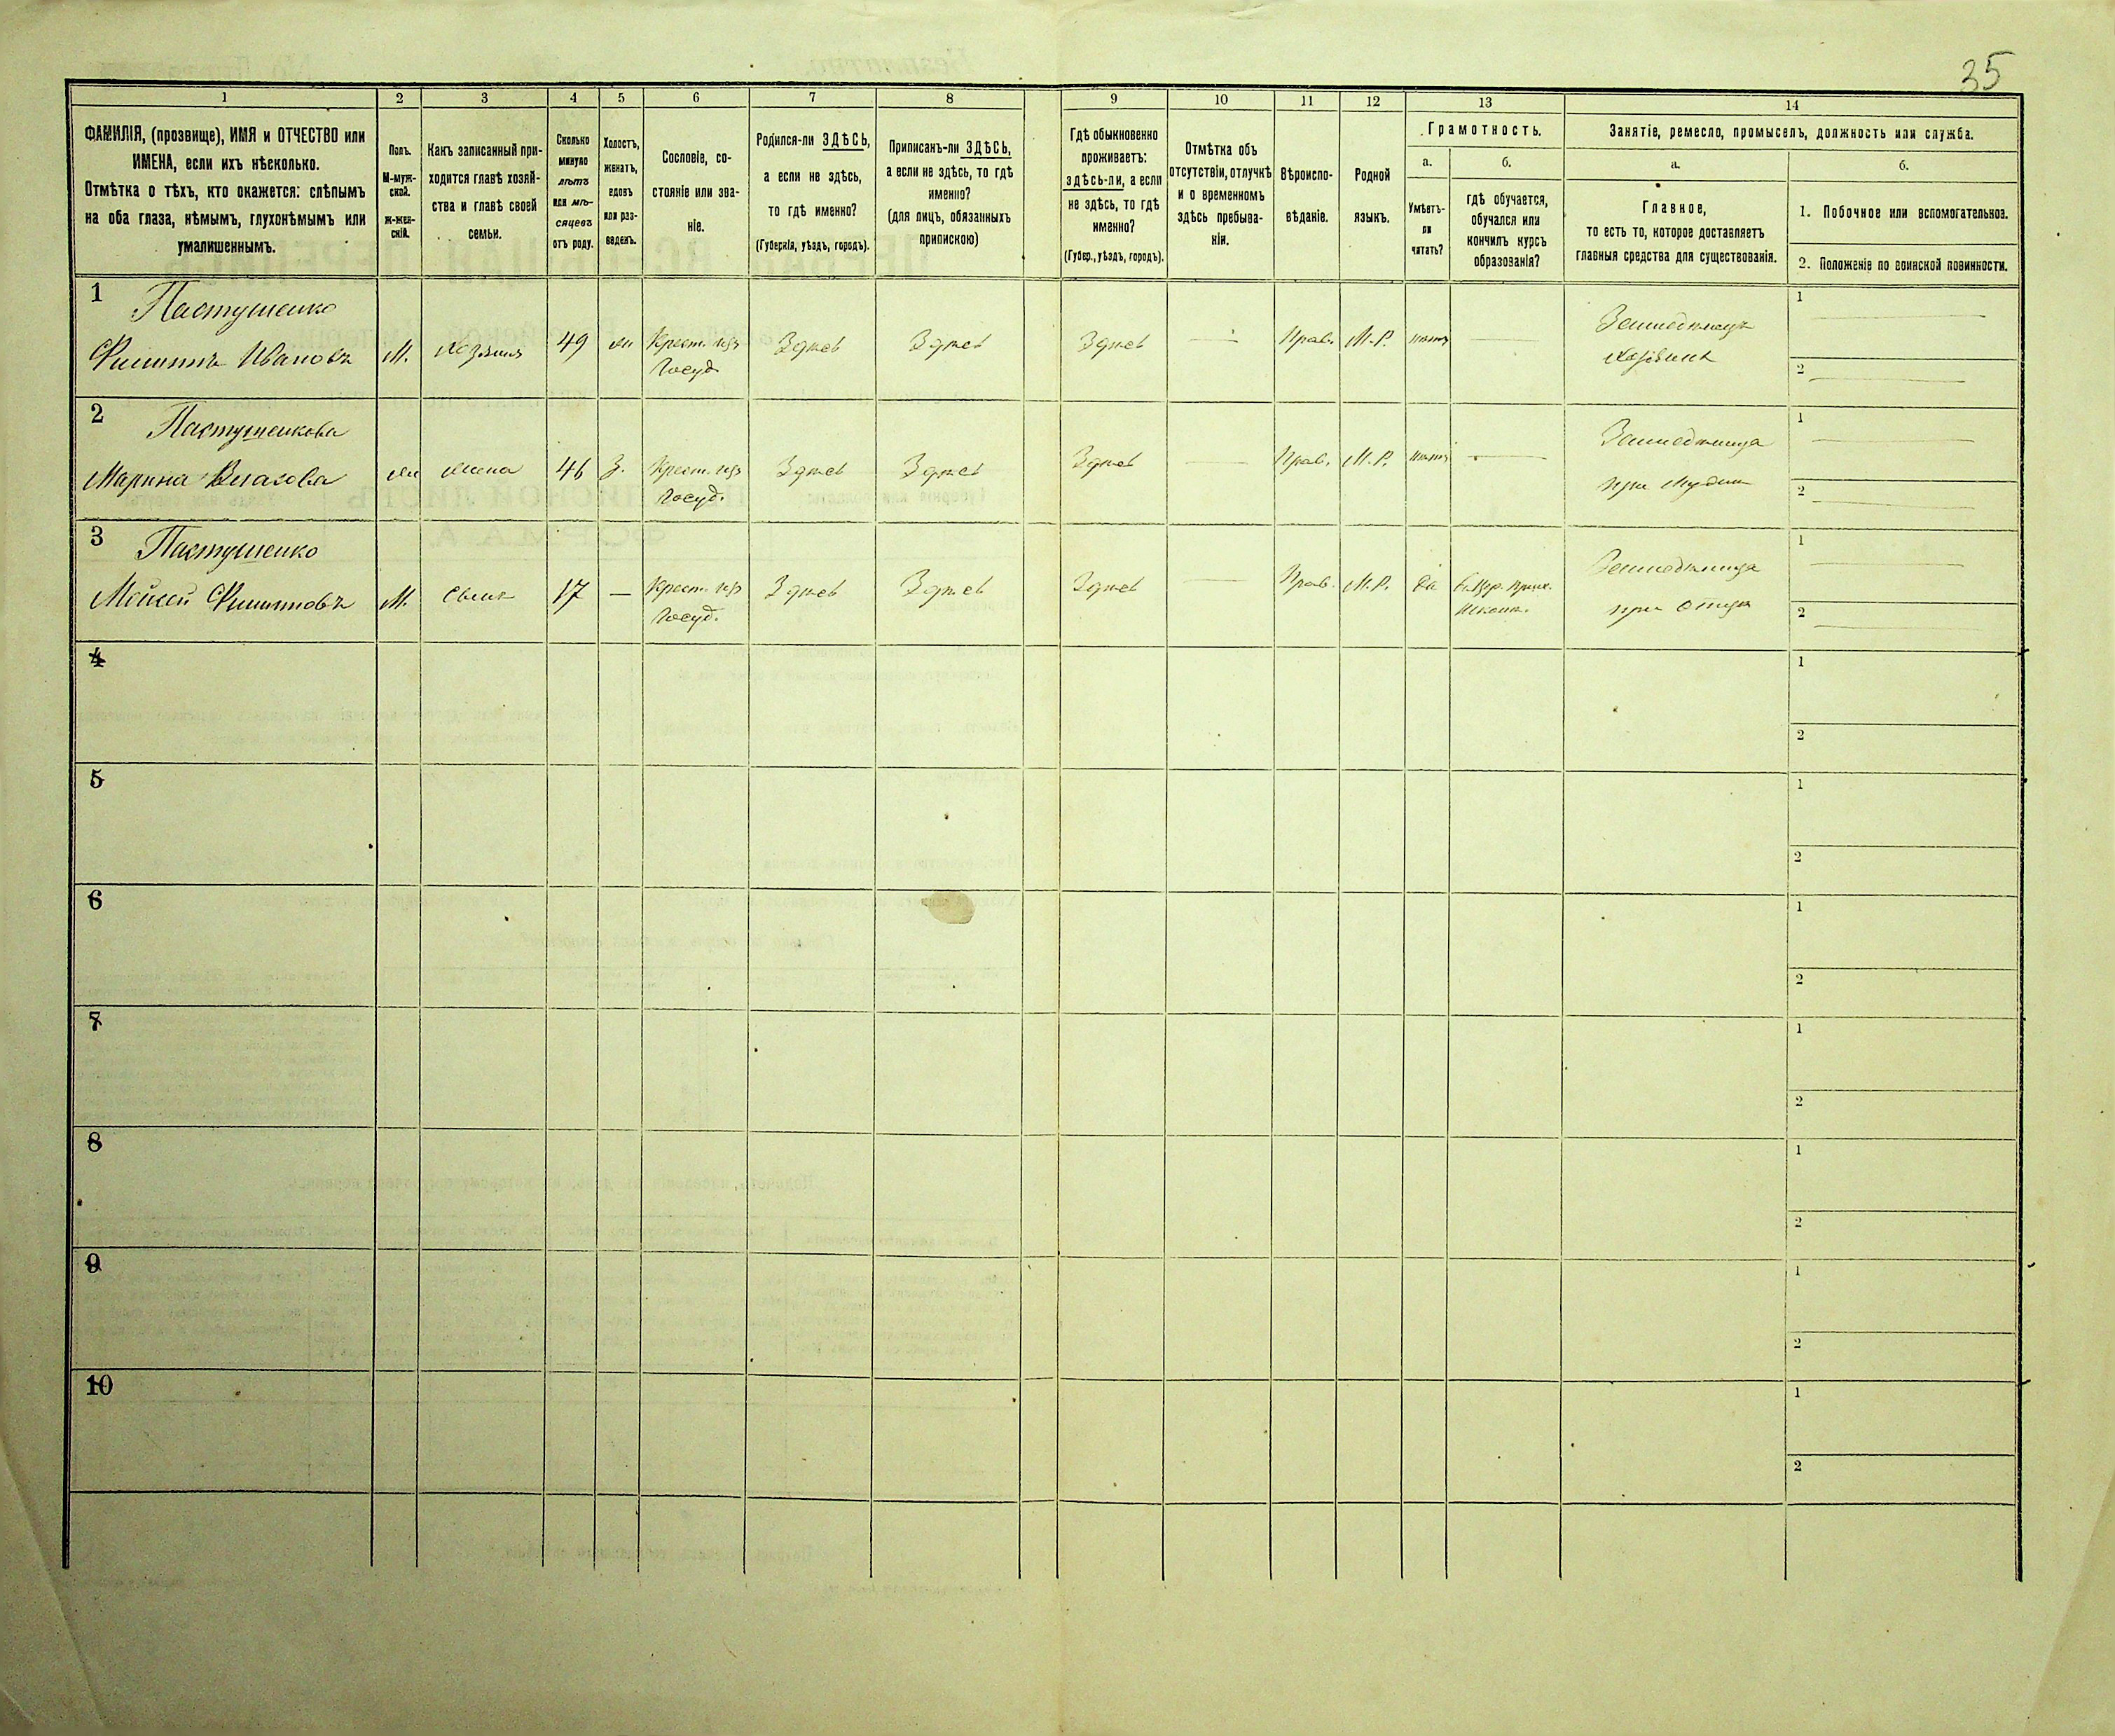 35
1 2 3 4 5 6 7 8 9 10 11 12 13 14
ФАМИЛІЯ, (прозвище), ИМЯ и ОТЧЕСТВО или
ИМЕНА, если ихъ нѣсколько.
Отмѣтка о тѣхъ, кто окажется: слѣпымъ
на оба глаза, нѣмымъ, глухонѣмымъ или
умалишеннымъ.
Полъ.
М-муж-
ской.
ж-жен-
скій.
Какъ записанный при-
ходится главѣ хозяй-
ства и главѣ своей
семьи.
Сколько
минуло
лѣтъ
или мѣ-
сяцевъ
отъ роду.
Холостъ,
женатъ,
вдовъ
или раз-
веденъ.
Сословіе, со-
стояніе или зва-
ніе.
Родился-ли ЗДѢСЬ,
а если не здѣсь,
то гдѣ именно?
(Губернія, уѣздъ, городъ).
Приписанъ-ли ЗДѢСЬ,
а если не здѣсь, то гдѣ
именно?
(для лицъ, обязанныхъ
припискою)
Гдѣ обыкновенно
проживаетъ:
здѣсь-ли, а если
не здѣсь, то гдѣ
именно?
(Губер., уѣздъ, городъ).
Отмѣтка объ
отсутствіи, отлучкѣ
и о временномъ
здѣсь пребыва-
ніи.
Вѣроиспо-
вѣданіе.
Родной
языкъ.
Грамотность.
а.
Умѣетъ-
ли
читать?
б.
гдѣ обучается,
обучался или
кончилъ курсъ
образованія?
Занятіе, ремесло, промыселъ, должность или служба.
а.
Главное,
то есть то, которое доставляетъ
главныя средства для существованія.
б.
1. Побочное или вспомогательное.
2. Положеніе по воинской повинности.
1 Пастушенко
Филиппъ Ивановъ М. Хозяинъ 49 ж Крест. изъ Здѣсь Здѣсь Здѣсь — Прав. М.-Р. нѣтъ — Земледѣлецъ 1 —
Госуд. Хозяинъ 2 —
2 Пастушенкова
Марина Власова ж жена 46 З. Крест. изъ Здѣсь Здѣсь Здѣсь — Прав. М.-Р. нѣтъ — Земледѣлица 1 —
Госуд. при мужѣ 2 —
3 Пастушенко
Моисей Филипповъ М. Сынъ 17 — Крест. изъ Здѣсь Здѣсь Здѣсь — Прав. М.-Р. да Цер. прих. 1 —
Госуд. Школѣ. при отцѣ 2 —
4 1
2
5 1
2
6 1
2
7 1
2
8 1
2
9 1
2
10 1
2